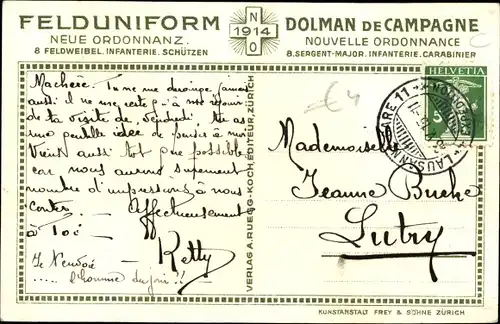 FELDUNIFORM
NEUE ORDONNANZ.
8 FELDWEIBEL. INFANTERIE. SCHÜTZEN
NO
1914
DOLMAN DE CAMPAGNE
NOUVELLE ORDONNANCE
8. SERGENT-MAJOR. INFANTERIE. CARABINIER
Tu me
aussi il ne me reste à mon
de ta visite de Vendredi. Tu as
une gentille idée de penser à moi
Vient aussi tot que possible
car nous aurons surement
nombre d'impressions à nous
conter. Affectueusement
à Toi
Ketty
Je t'envoie
..... l'homme du jour!!
VERLAG A. RUEGG-KOCH, EDITEUR, ZÜRICH
€4
HELVETIA
5
LAUSANNE
GARE 11
Mademoiselle
Jeanne Buche
Lutry
KUNSTANSTALT FREY & SÖHNE ZÜRICH